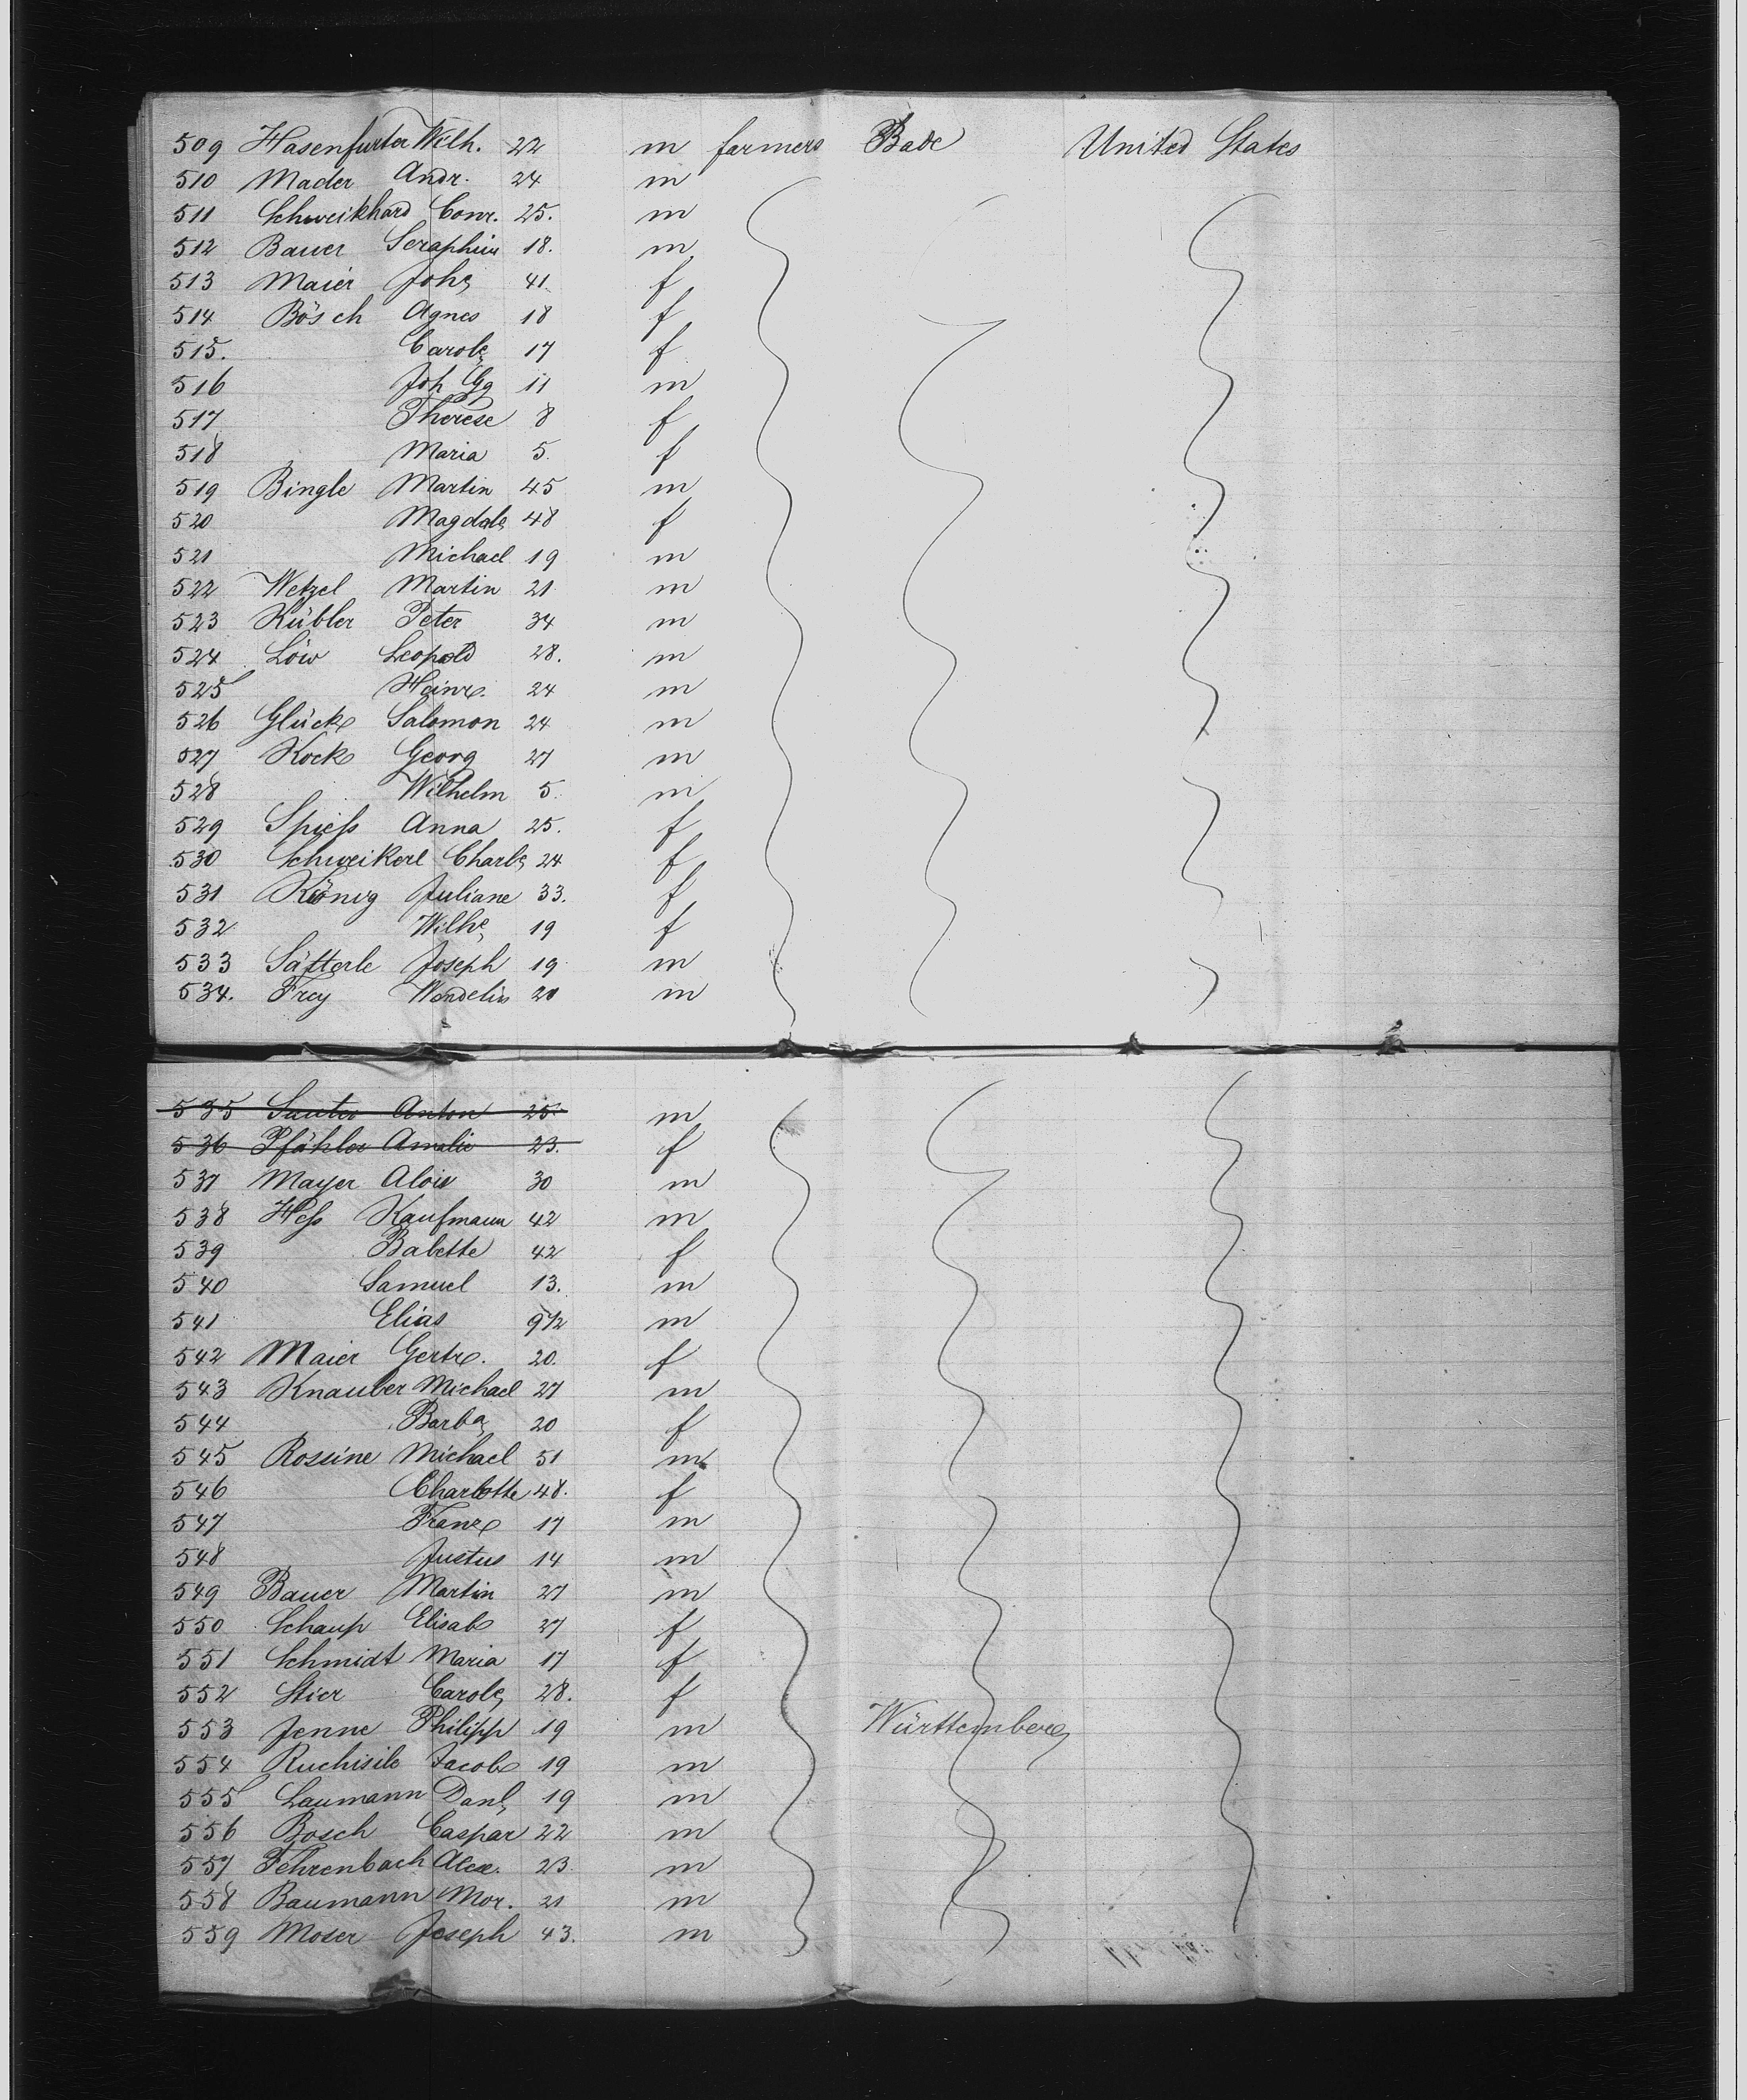 509 Hasenfurter Wilh. 22 m farmers Bade United States
510 Mader Andr. 24 m
511 Schweikhard Conr. 25. m
512 Bauer Seraphim 18. m
513 Maier Johe 41. f
514 Bösch Agnes 18 f
515. Carole 17 f
516 Joh Gg 11 m
517 Therese 8 f
518 Maria 5. f
519 Bingle Martin 45 m
520 Magdale 48 f
521 Michael 19 m
522 Wetzel Martin 21 m
523 Kübler Peter 34 m
524 Löw Leopold 28. m
525 Heinr. 24 m
526 Glück Salomon 24 m
527 Kock Georg 27 m
528 Wilhelm 5. m
529 Spiess Anna 25. f
530 Schweikerl Charle 24 f
531 König Juliane 33. f
532 Wilhe 19 f
533 Sätterle Joseph 19 m
534. Frey Wendelin 20 m
535 Sauter Anton 25. m
536 Pfähler Amalie 23. f
537 Mayer Alois 30 m
538 Hess Kaufmann 42 m
539 Babette 42 f
540 Samuel 13. m
541 Elias 9 1/2 m
542 Maier Gertr. 20. f
543 Knauber Michael 27 m
544 Barba 20 f
545 Rossine Michael 51 m
546 Charlotte 48. f
547 Franz 17 m
548 Justus 14 m
549 Bauer Martin 27 m
550 Schaup Elisab 27 f
551 Schmidt Maria 17 f
552 Stier Carole 28. f
553 Jenne Philipp 19 m Württemberg
554 Ruchisile Jacob 19 m
555 Laumann Danl 19 m
556 Bosch Caspar 22 m
557 Fehrenbach Alex. 23. m
558 Baumann Mor. 21 m
559 Moser Joseph 43. m